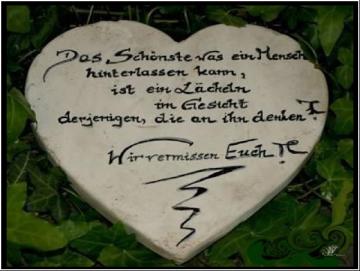 Das Schönste was ein Mensch
hinterlassen kann,
ist ein Lächeln
im Gesicht
derjenigen, die an ihn denken!
Wir vermissen Euch!